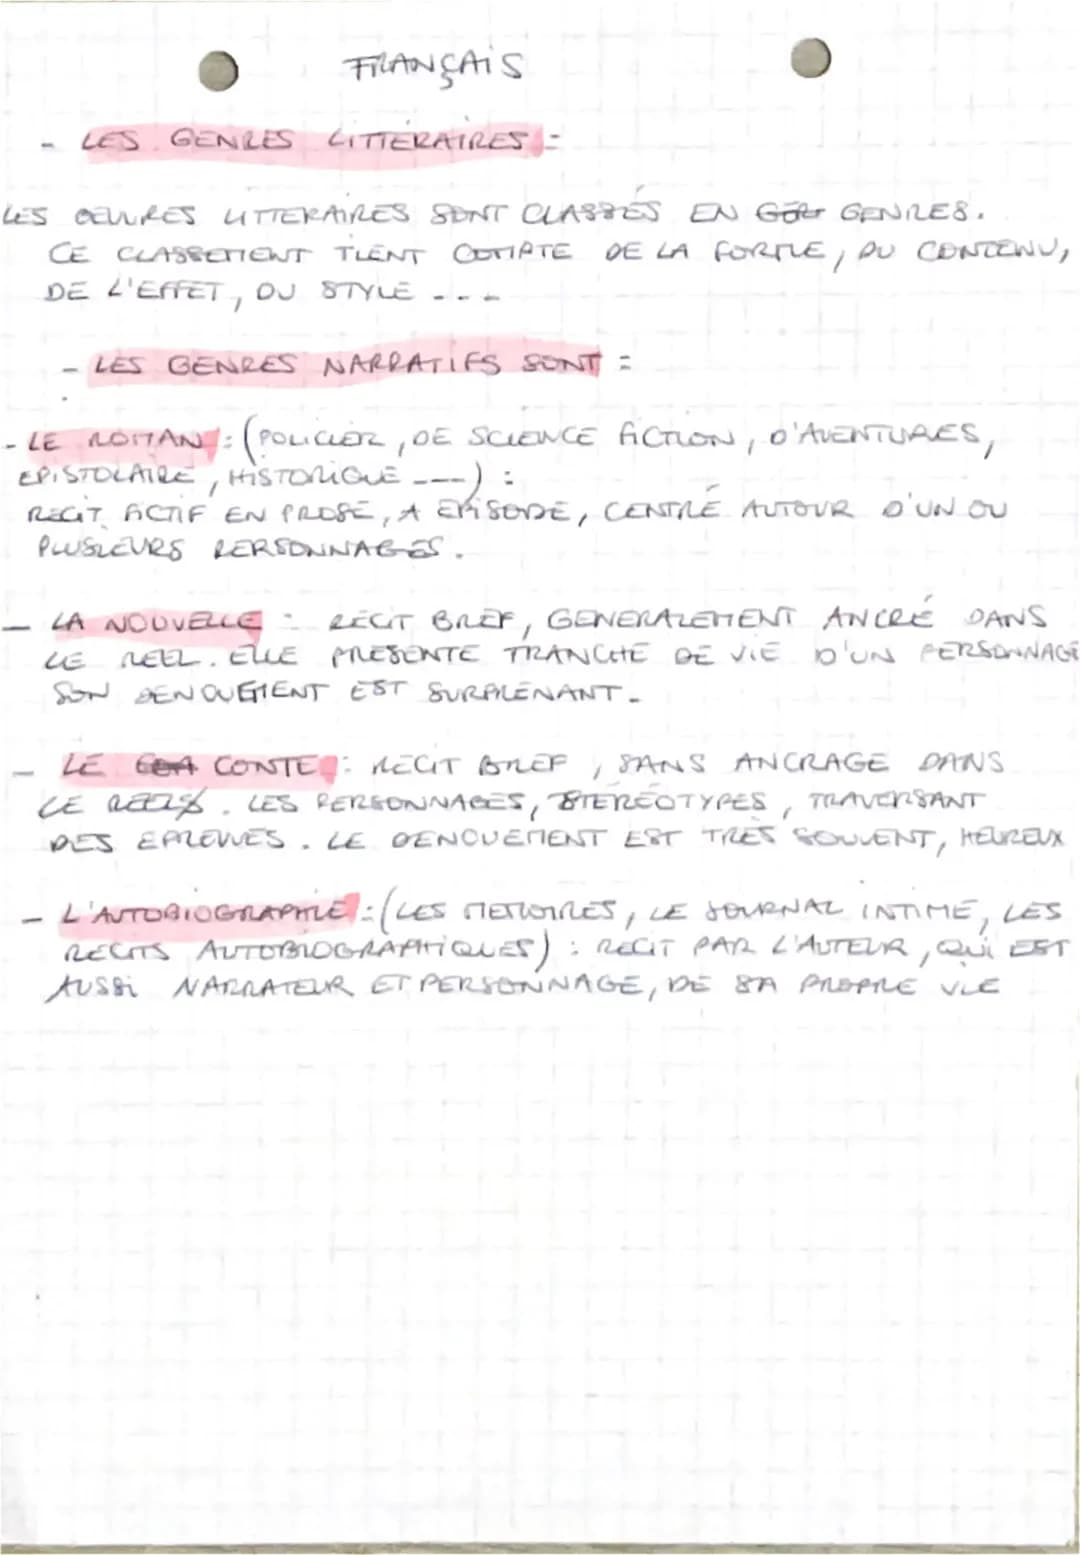 FRANÇAIS
- LES GENRES LITTÉRAIRES :
LES OEUVRES LITTERAIRES SONT CLASSÉS EN GER GENRES.
CE CLASSEMENT TIENT COMPTE DE LA FORME, DU CONTENU,
DE L'EFFET, DU STYLE ...
- LES GENRES NARRATIFS SONT :
- LE ROMAN : (POLICIER, DE SCIENCE FICTION, D'AVENTURES,
EPISTOLAIRE, HISTORIQUE ---) :
RECIT FICTIF EN PROSE, A EPISODE, CENTRÉ AUTOUR D'UN OU
PLUSIEURS PERSONNAGES.
- LA NOUVELLE : RÉCIT BREF, GENERALEMENT ANCRÉ DANS
LE REEL. ELLE PRESENTE TRANCHE DE VIE D'UN PERSONNAGE
SON DENOUEMENT EST SURPRENANT.
- LE CONTE : RECIT BREF, SANS ANCRAGE DANS
LE REEL. LES PERSONNAGES, STÉRÉOTYPES, TRAVERSANT
DES EPREUVES. LE DENOUEMENT EST TRÈS SOUVENT, HEUREUX
- L'AUTOBIOGRAPHIE : (LES MEMOIRES, LE JOURNAL INTIME, LES
RECITS AUTOBIOGRAPHIQUES) : RECIT PAR L'AUTEUR, QUI EST
AUSSI NARRATEUR ET PERSONNAGE, DE SA PROPRE VIE